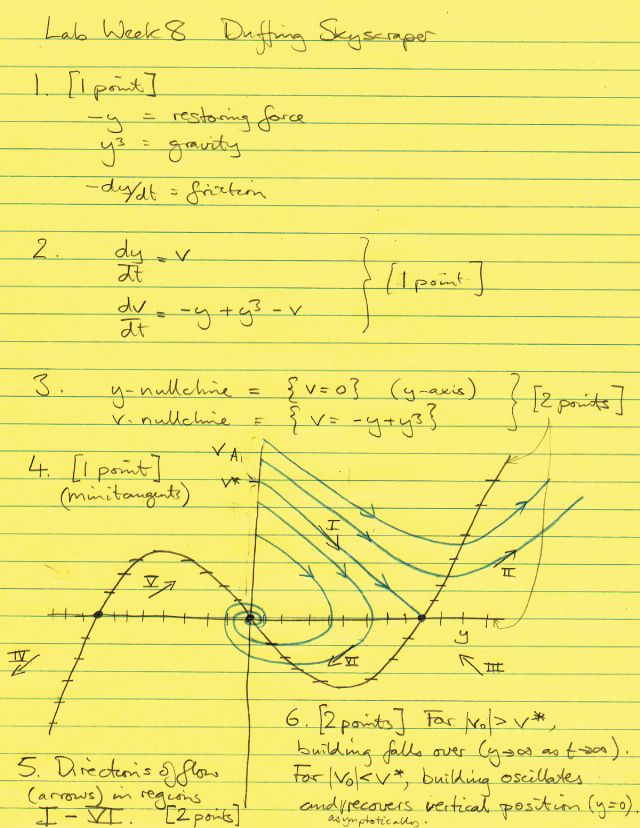 Lab Week 8 Duffing Skyscraper
1. [1 point]
-y = restoring force
y³ = gravity
-dy/dt = friction
2. dy/dt = v
dv/dt = -y + y³ - v
[1 point]
3. y-nullcline = {v=0} (y-axis)
v-nullcline = {v = -y + y³}
[2 points]
4. [1 point]
(minitangents)
v
v*
I
II
III
IV
V
VI
y
5. Directions of flow
(arrows) in regions
I – VI. [2 points]
6. [2 points] For |v₀| > v*,
building falls over (y→∞ as t→∞).
For |v₀| < v*, building oscillates
and recovers vertical position (y=0).
asymptotically.